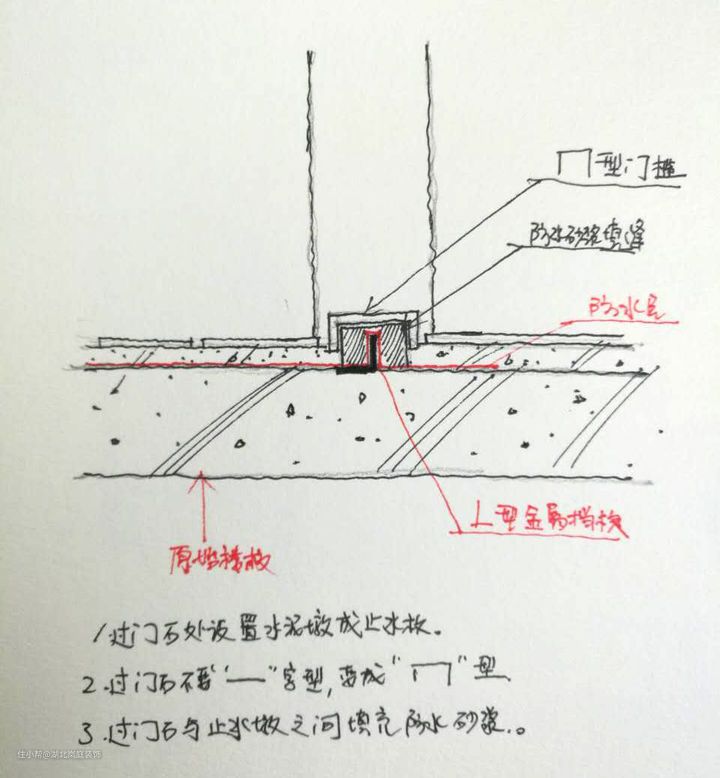 冂型门槛
防水砂浆填缝
防水层
L型金属挡板
原始楼板
1.过门石处设置水泥墩或止水板。
2.过门石不要“一”字型,要成“冂”型
3.过门石与止水墩之间填充防水砂浆。
住小帮@湖北岗庭装饰